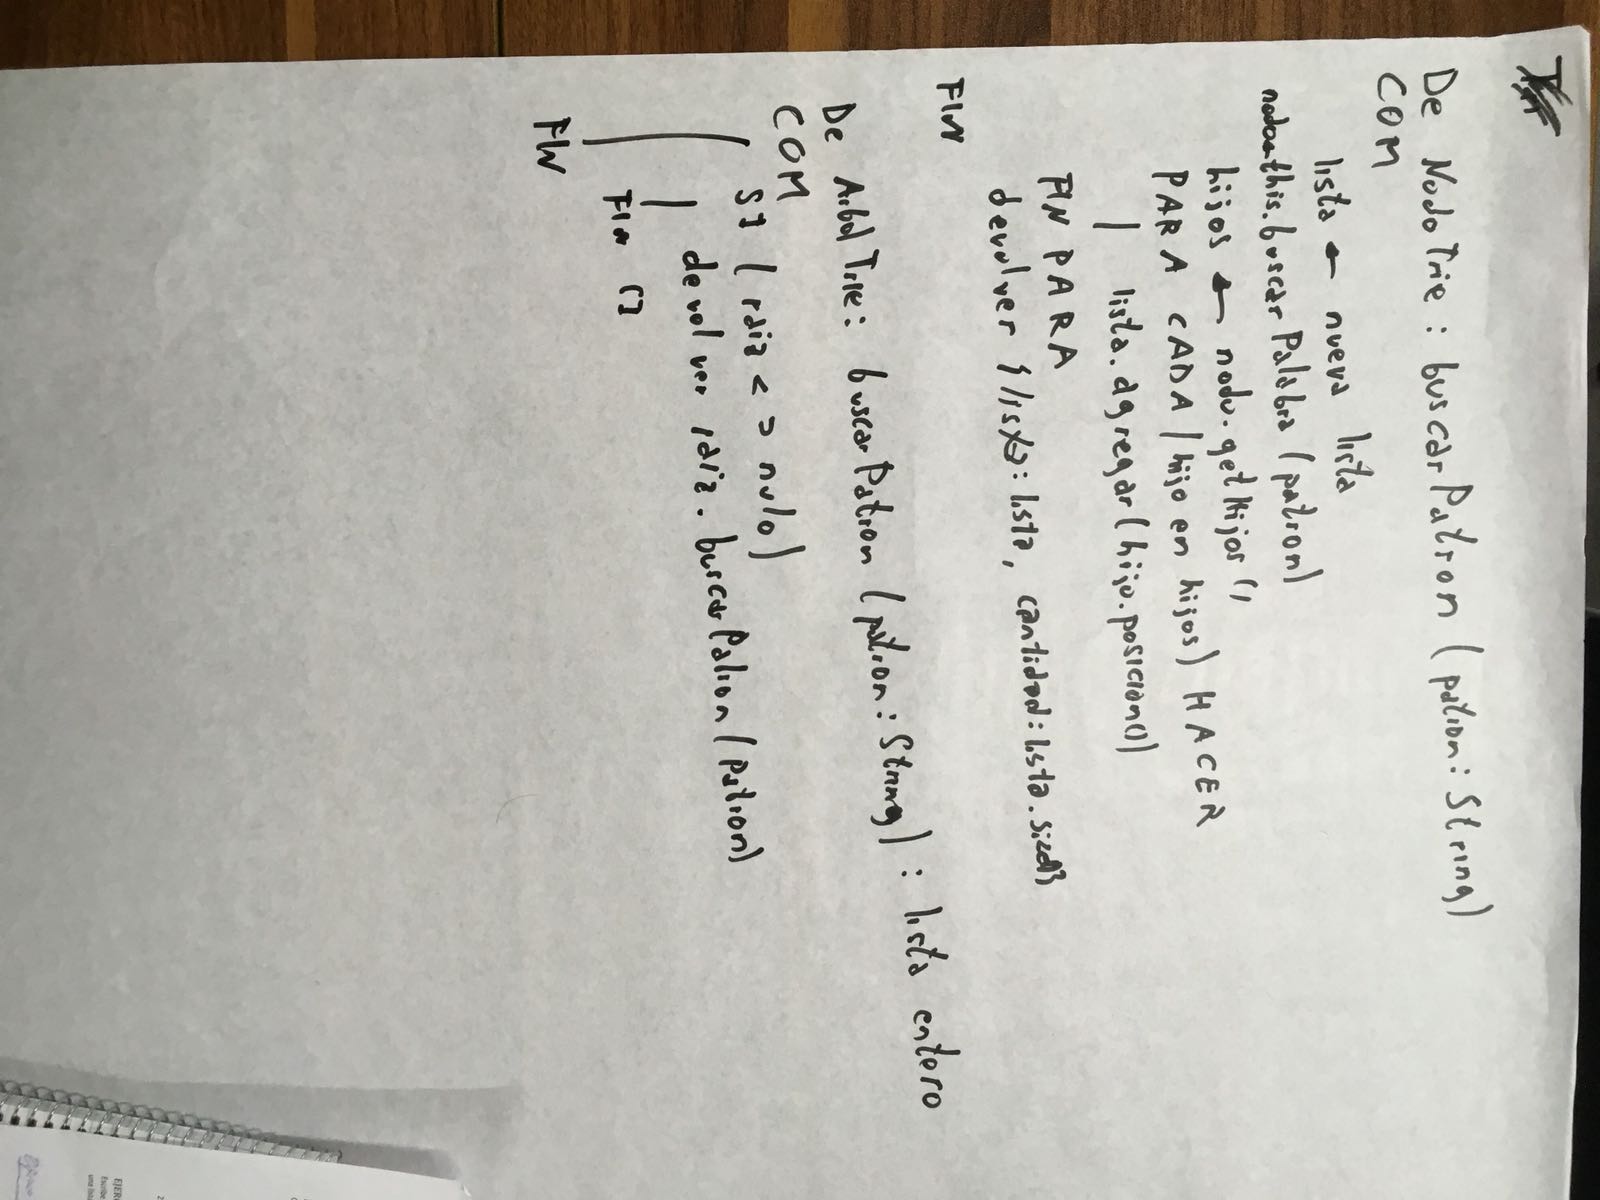 De NodoTrie : buscarPatron (patron: String)
COM
lista ← nueva lista
nodo←this.buscarPalabra (patron)
hijos ← nodo.getHijos ()
PARA CADA (hijo en hijos) HACER
lista.agregar (hijo.posicion())
FIN PARA
devolver {lista: lista, cantidad: lista.size()}
FIN
De ArbolTrie: buscarPatron (patron: String) : lista entero
COM
SI (raiz <> nulo)
devolver raiz.buscarPatron (patron)
FIN SI
FIN
EJER
Escribe
una lista